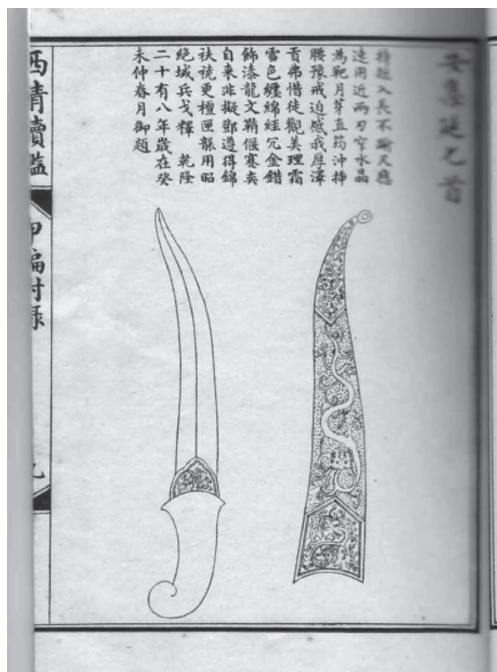 安集延匕首
持短入長不踰尺應
速用近兩刃窄水晶
為靶月芽直药冲揷
腰豫戒迫感我厚澤
貢弗惜徒觀美理霜
雪色纏綿絰冗金錯
飾漆龍文鞘偃蹇奕
自来非擬鄧遵得錦
更檀匣用昭
絶域兵戈釋 乾隆
二十有八年歲在癸
未仲春月御題
西清續鑑
甲編附錄